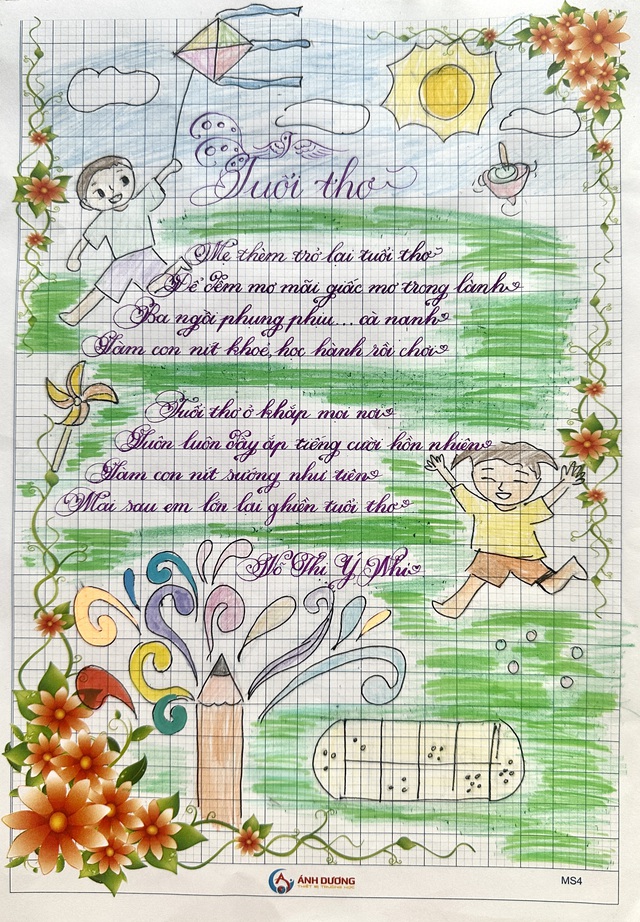 Tuổi thơ
Mẹ thèm trở lại tuổi thơ
Để đêm mơ mãi giấc mơ trong lành
Ba ngồi phụng phịu... cà nạnh
Làm con nít khoẻ, học hành rồi chơi
Tuổi thơ ở khắp mọi nơi
Luôn luôn đầy ắp tiếng cười hồn nhiên
Làm con nít sướng như tiên
Mai sau em lớn lại ghiền tuổi thơ
Hồ Thị Ý Nhi
ÁNH DƯƠNG
THIẾT BỊ TRƯỜNG HỌC
MS4